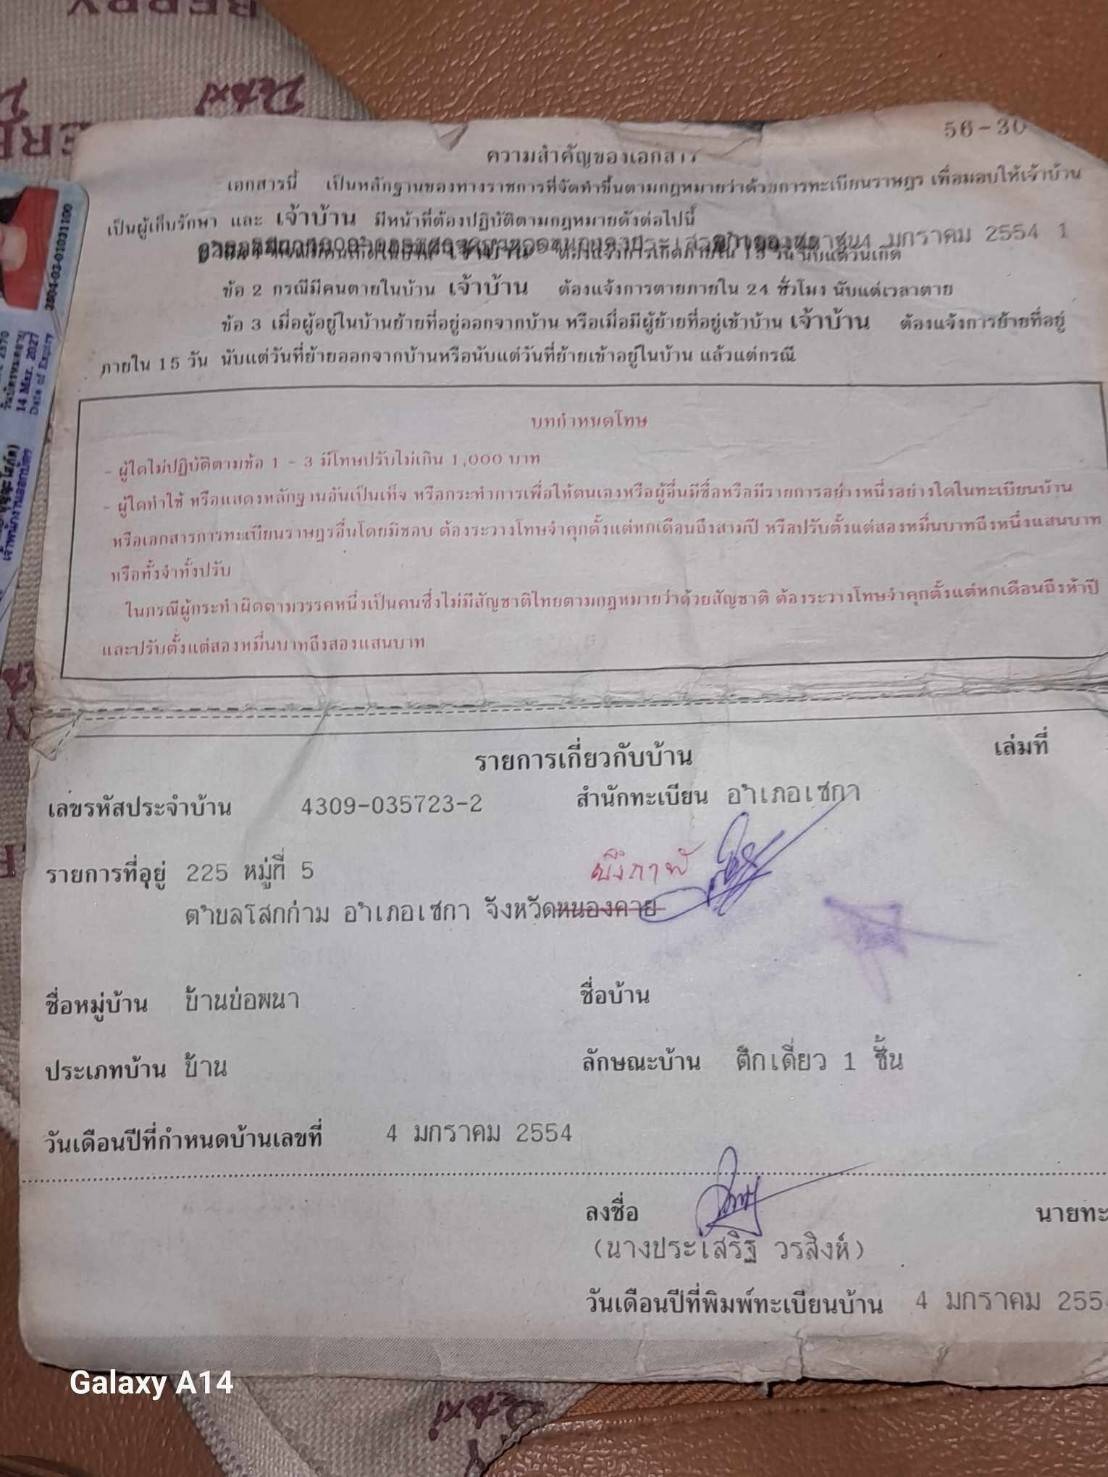 56-30
ความสำคัญของเอกสาร
เอกสารนี้ เป็นหลักฐานของทางราชการที่จัดทำขึ้นตามกฎหมายว่าด้วยการทะเบียนราษฎร เพื่อมอบให้เจ้าบ้าน
เป็นผู้เก็บรักษา และ เจ้าบ้าน มีหน้าที่ต้องปฏิบัติตามกฎหมายดังต่อไปนี้
มกราคม 2554 1
เจ้าบ้าน ต้องแจ้งการเกิดภายใน 15 วัน นับแต่วันเกิด
ข้อ 2 กรณีมีคนตายในบ้าน เจ้าบ้าน ต้องแจ้งการตายภายใน 24 ชั่วโมง นับแต่เวลาตาย
ข้อ 3 เมื่อผู้อยู่ในบ้านย้ายที่อยู่ออกจากบ้าน หรือเมื่อมีผู้ย้ายที่อยู่เข้าบ้าน เจ้าบ้าน ต้องแจ้งการย้ายที่อยู่
ภายใน 15 วัน นับแต่วันที่ย้ายออกจากบ้านหรือนับแต่วันที่ย้ายเข้าอยู่ในบ้าน แล้วแต่กรณี
บทกำหนดโทษ
- ผู้ใดไม่ปฏิบัติตามข้อ 1 - 3 มีโทษปรับไม่เกิน 1,000 บาท
- ผู้ใดทำใช้ หรือแสดงหลักฐานอันเป็นเท็จ หรือกระทำการเพื่อให้ตนเองหรือผู้อื่นมีชื่อหรือมีรายการอย่างหนึ่งอย่างใดในทะเบียนบ้าน
หรือเอกสารการทะเบียนราษฎรอื่นโดยมิชอบ ต้องระวางโทษจำคุกตั้งแต่หกเดือนถึงสามปี หรือปรับตั้งแต่สองหมื่นบาทถึงหนึ่งแสนบาท
หรือทั้งจำทั้งปรับ
ในกรณีผู้กระทำผิดตามวรรคหนึ่งเป็นคนซึ่งไม่มีสัญชาติไทยตามกฎหมายว่าด้วยสัญชาติ ต้องระวางโทษจำคุกตั้งแต่หกเดือนถึงห้าปี
และปรับตั้งแต่สองหมื่นบาทถึงสองแสนบาท
รายการเกี่ยวกับบ้าน
เล่มที่
เลขรหัสประจำบ้าน 4309-035723-2 สำนักทะเบียน อำเภอเซกา
รายการที่อยู่ 225 หมู่ที่ 5
บึงกาฬ
ตำบลโสกก่าม อำเภอเซกา จังหวัดหนองคาย
ชื่อหมู่บ้าน บ้านบ่อพนา ชื่อบ้าน
ประเภทบ้าน บ้าน ลักษณะบ้าน ตึกเดี่ยว 1 ชั้น
วันเดือนปีที่กำหนดบ้านเลขที่ 4 มกราคม 2554
ลงชื่อ นายทะ
(นางประเสริฐ วรสิงห์)
วันเดือนปีที่พิมพ์ทะเบียนบ้าน 4 มกราคม 255
14 Mar. 2027
Date of Expiry
เจ้าพนักงานออกบัตร
Galaxy A14